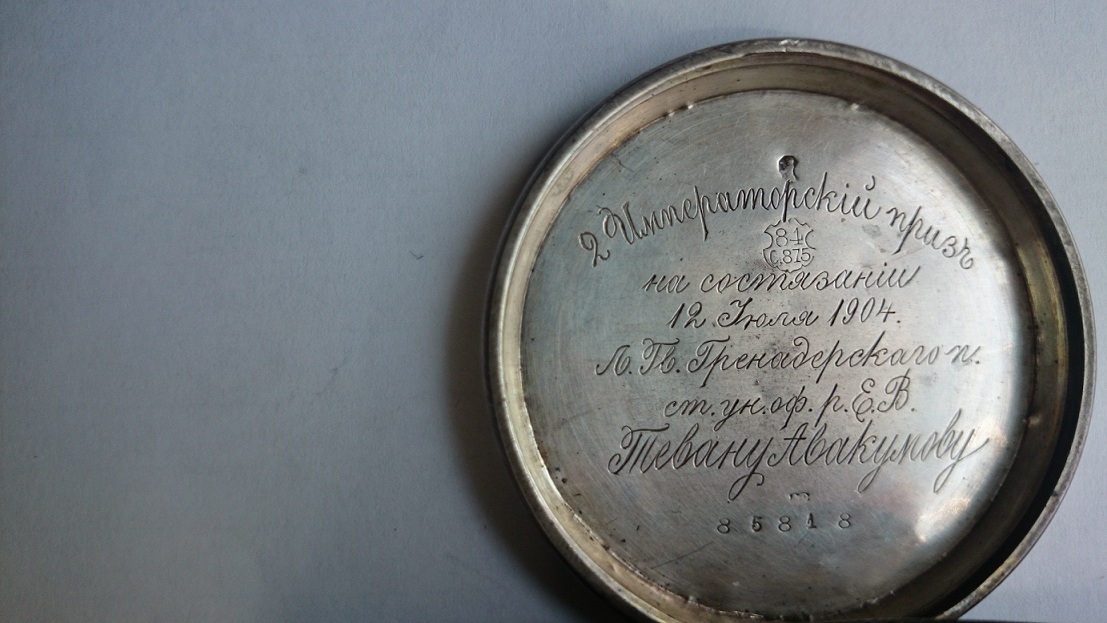 2 Императорскій призъ
84
С.875
на состязаніи
12 Июля 1904.
Л. Гв. Гренадерскаго п.
ст. ун. оф. р. Е. В.
Тевану Авакумову
85818